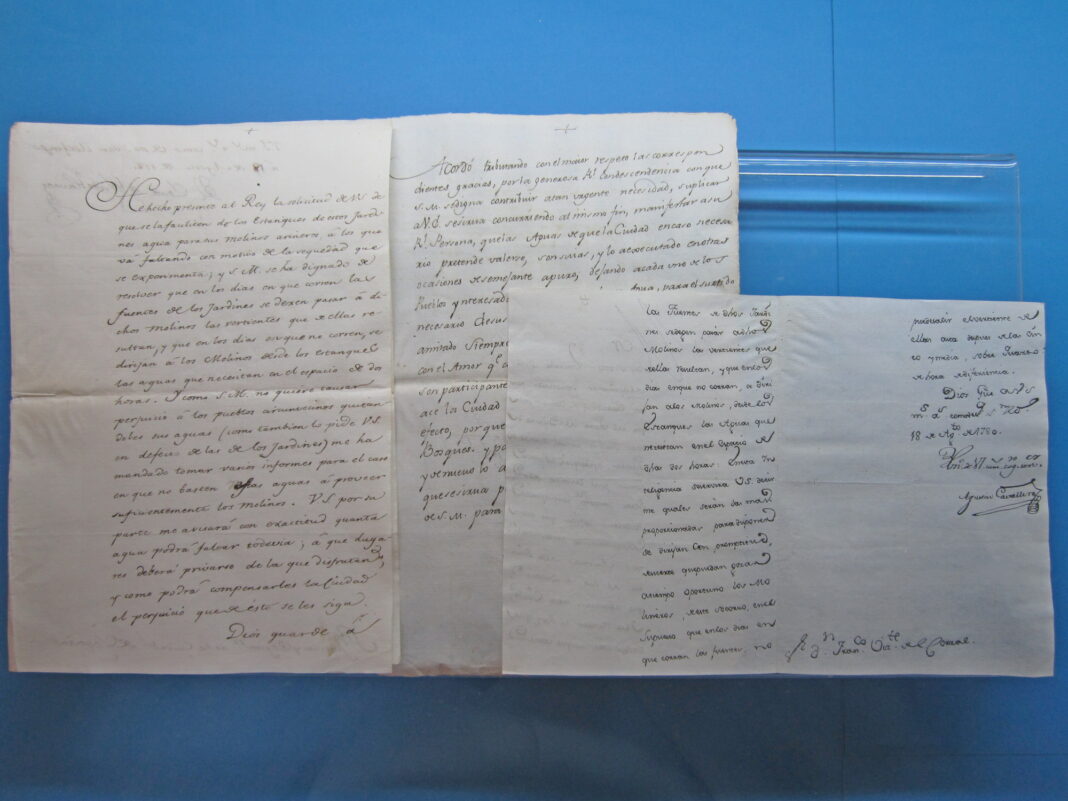 He hecho presente al Rey la solicitud de V.S. de
que se la faciliten de los Estanques de estos Jardi
nes agua para sus molinos arineros, á los que
vá faltando con motivo de la sequedad que
se experimenta; y S M. se ha dignado de
resolver que en los dias en que corren las
fuentes de los Jardines se dexen pasar á di
chos molinos las vertientes que de ellas re
sultan, y que en los dias en que no corren, se
dirijan á los Molinos desde los estanques
las aguas que necesiten en el espacio de dos
horas. Y como S M. no quiere causar
perjuicio á los pueblos circunvecinos quitan
doles sus aguas (como tambien lo pide V.S.
en defecto de las de los Jardines) me ha
mandado tomar varios informes para el caso
en que no basten estas aguas á proveer
suficientemente los molinos. V.S. por su
parte me avisará con exactitud quanta
agua podrá faltar todavia, á que luga
res deberá privarse de la que disfrutan,
y como podrá compensarles la Ciudad
el perjuicio que de ésto se les siga.
Dios guarde á
Acordó tributando con el maior respeto las correspon
dientes gracias, por la generosa Rl. condescendencia con que
S. M. se digna contribuir a tan urgente necesidad, suplicar
a V.E. se sirva concurriendo al mismo fin, manifestar a su
Rl. Persona, que las Aguas de que la Ciudad en caso necesa
rio pretende valerse, son suias, y lo a executado en otras
ocasiones de semejante apuro, dejando a cada uno de los
Pueblos y interesado Agua, para el surtido
necesario
amitado Siempre
con el Amor qe.
sen participante
ace la Ciudad
efecto, por que
Bosques. y po
y de nuevo lo a
que se sirva p
de S.M. para
las Fuentes de dichos Jardi
nes se dejen pasar a dichos
Molinos las vertientes que
de ellas resultan, y que en los
dias en que no corran, se diri
jan a los Molinos, desde los
Estanques las Aguas que
necesitan en el espacio de
dos horas: En esta In
teligencia se servira V.S. decir
me quales serán las mas
proporcionadas para disponer
se dirijan con promptitud,
de suerte que puedan gozar
a tiempo oportuno los Mo
lineros, de este socorro, en el
Supuesto que en los dias en
que corran las fuentes, no
ellas asta despues de las cin
co y media,
de hora de diferencia.
Dios Gue. a V.S.
ms. as. como deseo. Sn. Ildefo.
18 de Agto. de 1780.
Sr. Dn. Franco. del Corral.